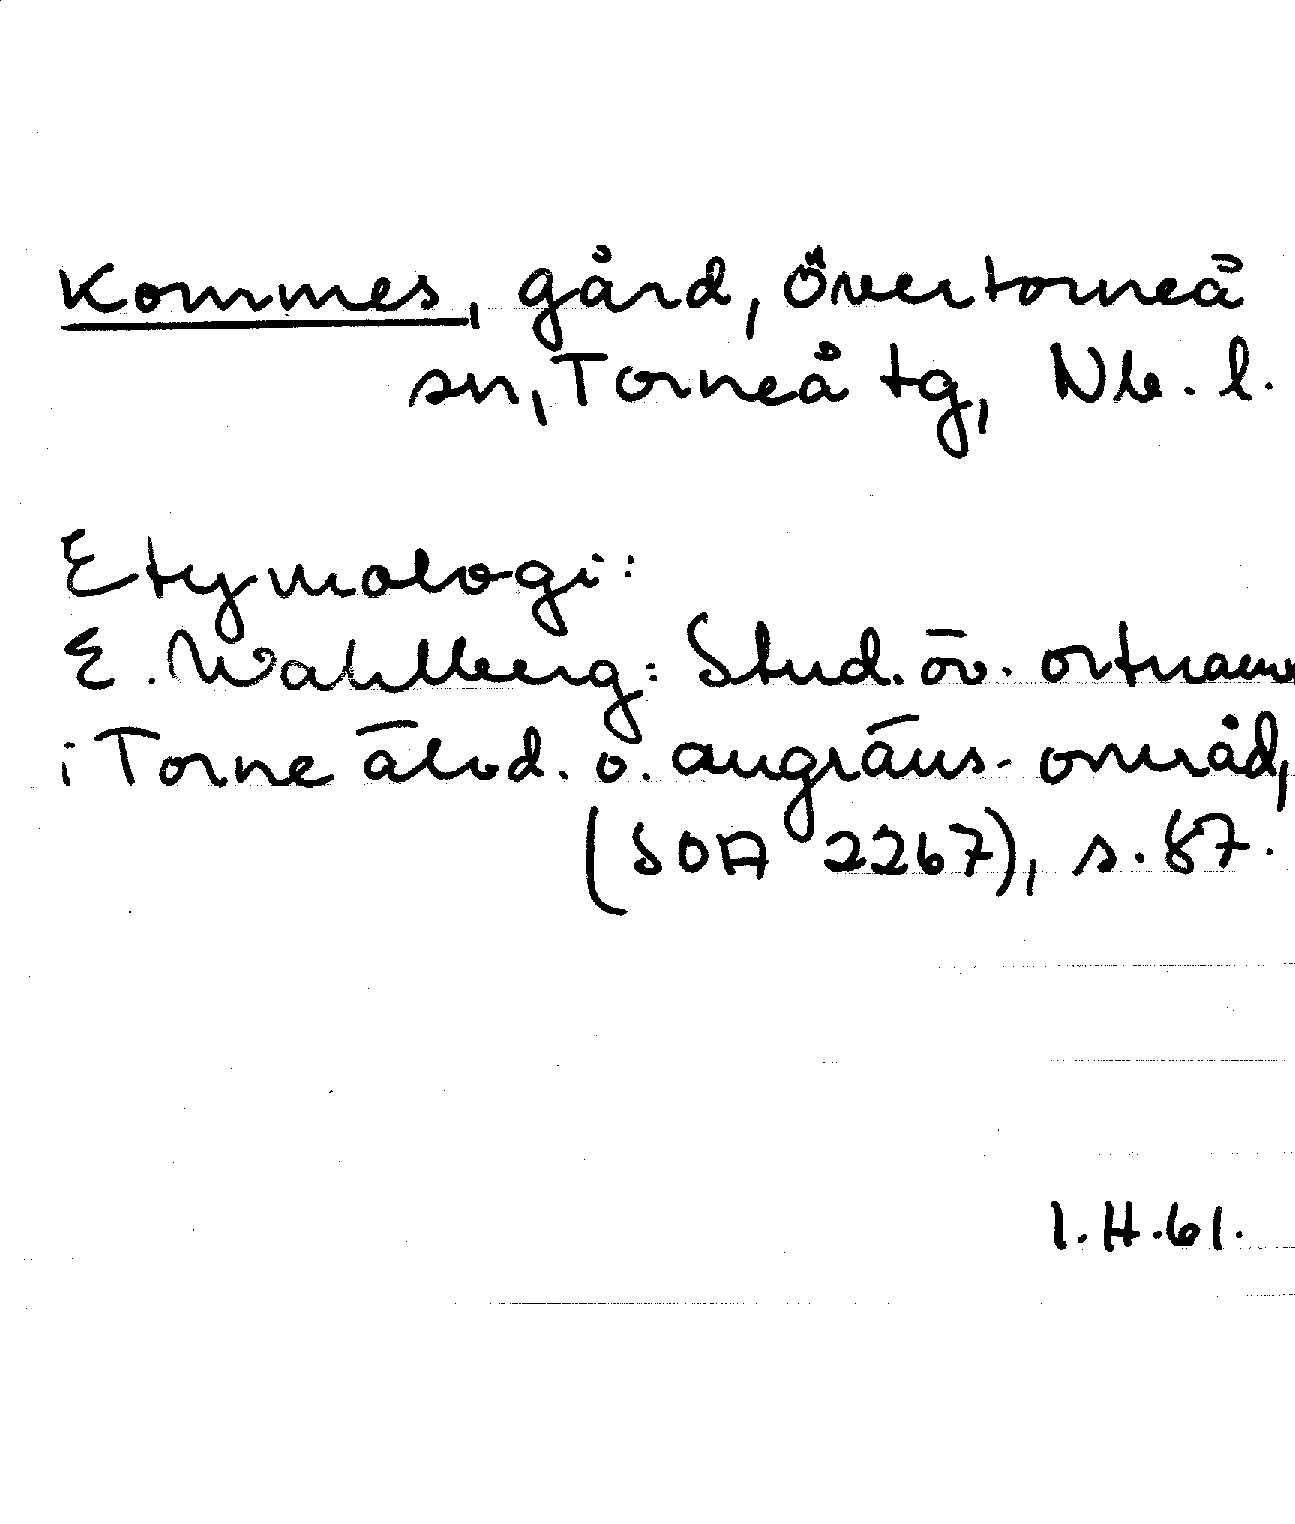 Kommes, gård, Övertorneå
sn, Torneå tg, Nb. l.
Etymologi:
E. Wahlberg: Stud. öv. ortnamn
i Torne älvd. o. angräns. områd,
(SOA 2267), s. 87.
I.H.61.